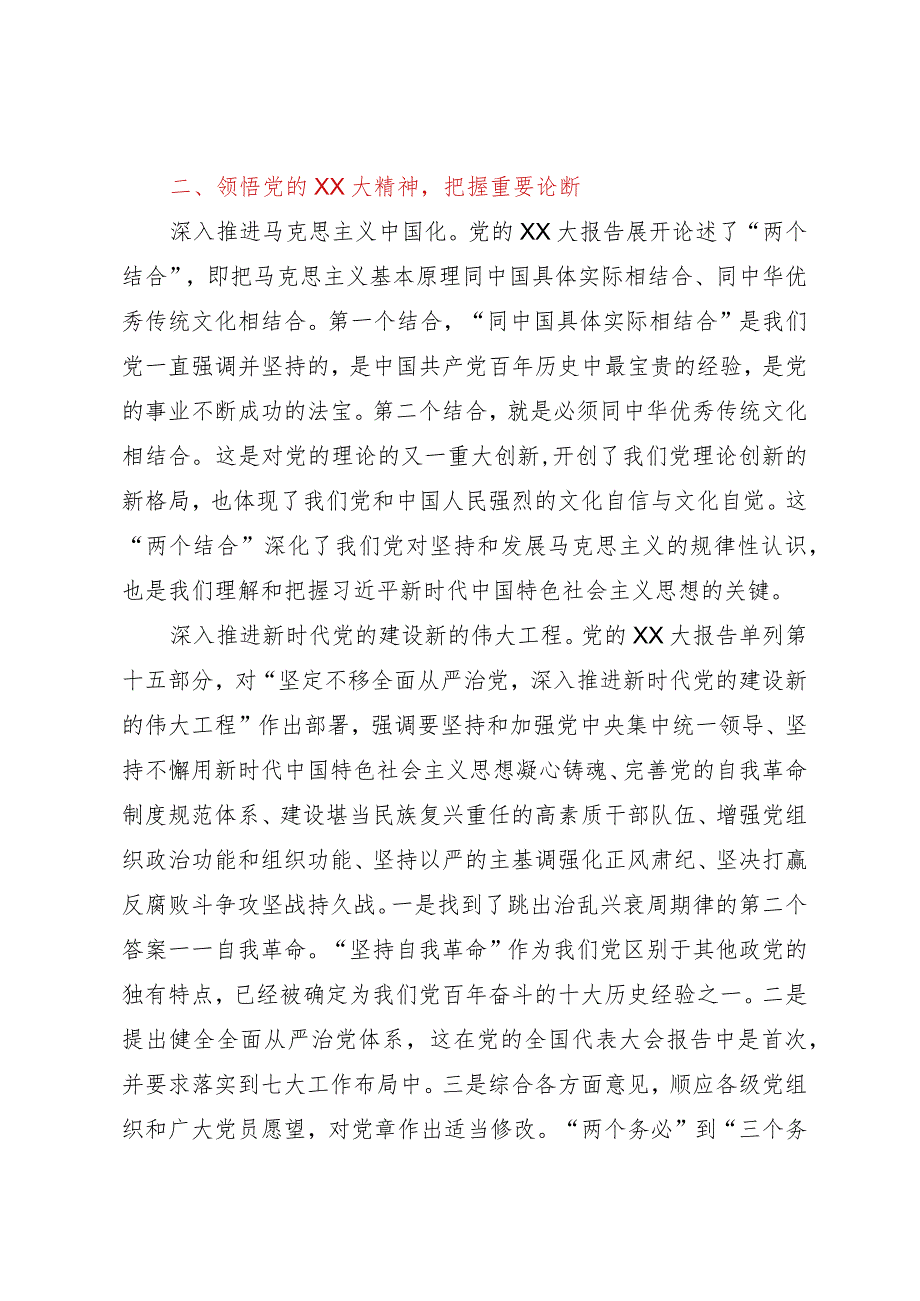 二、领悟党的 XX 大精神，把握重要论断
深入推进马克思主义中国化。党的 XX 大报告展开论述了“两个
结合”，即把马克思主义基本原理同中国具体实际相结合、同中华优
秀传统文化相结合。第一个结合，“同中国具体实际相结合”是我们
党一直强调并坚持的，是中国共产党百年历史中最宝贵的经验，是党
的事业不断成功的法宝。第二个结合，就是必须同中华优秀传统文化
相结合。这是对党的理论的又一重大创新,开创了我们党理论创新的
新格局，也体现了我们党和中国人民强烈的文化自信与文化自觉。这
“两个结合”深化了我们党对坚持和发展马克思主义的规律性认识，
也是我们理解和把握习近平新时代中国特色社会主义思想的关键。
深入推进新时代党的建设新的伟大工程。党的 XX 大报告单列第
十五部分，对“坚定不移全面从严治党，深入推进新时代党的建设新
的伟大工程”作出部署，强调要坚持和加强党中央集中统一领导、坚
持不懈用新时代中国特色社会主义思想凝心铸魂、完善党的自我革命
制度规范体系、建设堪当民族复兴重任的高素质干部队伍、增强党组
织政治功能和组织功能、坚持以严的主基调强化正风肃纪、坚决打赢
反腐败斗争攻坚战持久战。一是找到了跳出治乱兴衰周期律的第二个
答案一一自我革命。“坚持自我革命”作为我们党区别于其他政党的
独有特点，已经被确定为我们党百年奋斗的十大历史经验之一。二是
提出健全全面从严治党体系，这在党的全国代表大会报告中是首次，
并要求落实到七大工作布局中。三是综合各方面意见，顺应各级党组
织和广大党员愿望，对党章作出适当修改。“两个务必”到“三个务